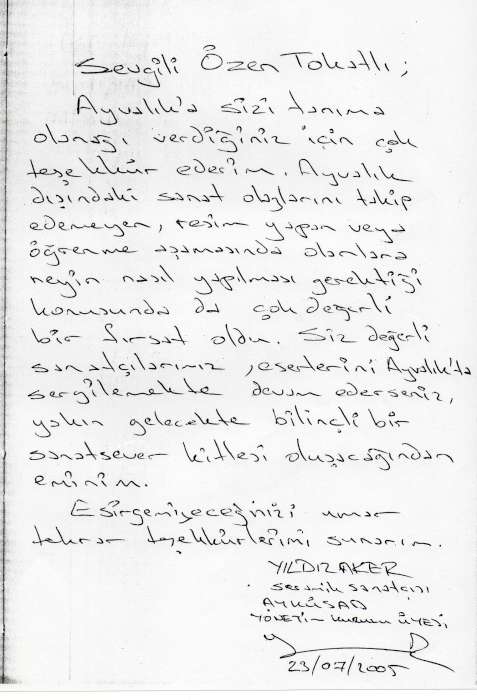 Sevgili Özen Tokatlı;
Ayvalık'a sizi tanıma
olanağı verdiğiniz için çok
teşekkür ederim. Ayvalık
dışındaki sanat olaylarını takip
edemeyen, resim yapan veya
öğrenme aşamasında olanlara
neyin nasıl yapılması gerektiği
konusunda da çok değerli
bir fırsat oldu. Siz değerli
sanatçılarımız, eserlerini Ayvalık'ta
sergilemekte devam ederseniz,
yakın gelecekte bilinçli bir
sanatsever kitlesi oluşacağından
eminim.
Esirgemiyeceğinizi umar
tekrar teşekkürlerimi sunarım.
YILDIZ AKER
Seramik sanatçısı
AYKÜSAD
YÖNETİM KURULU ÜYESİ
23/07/2005